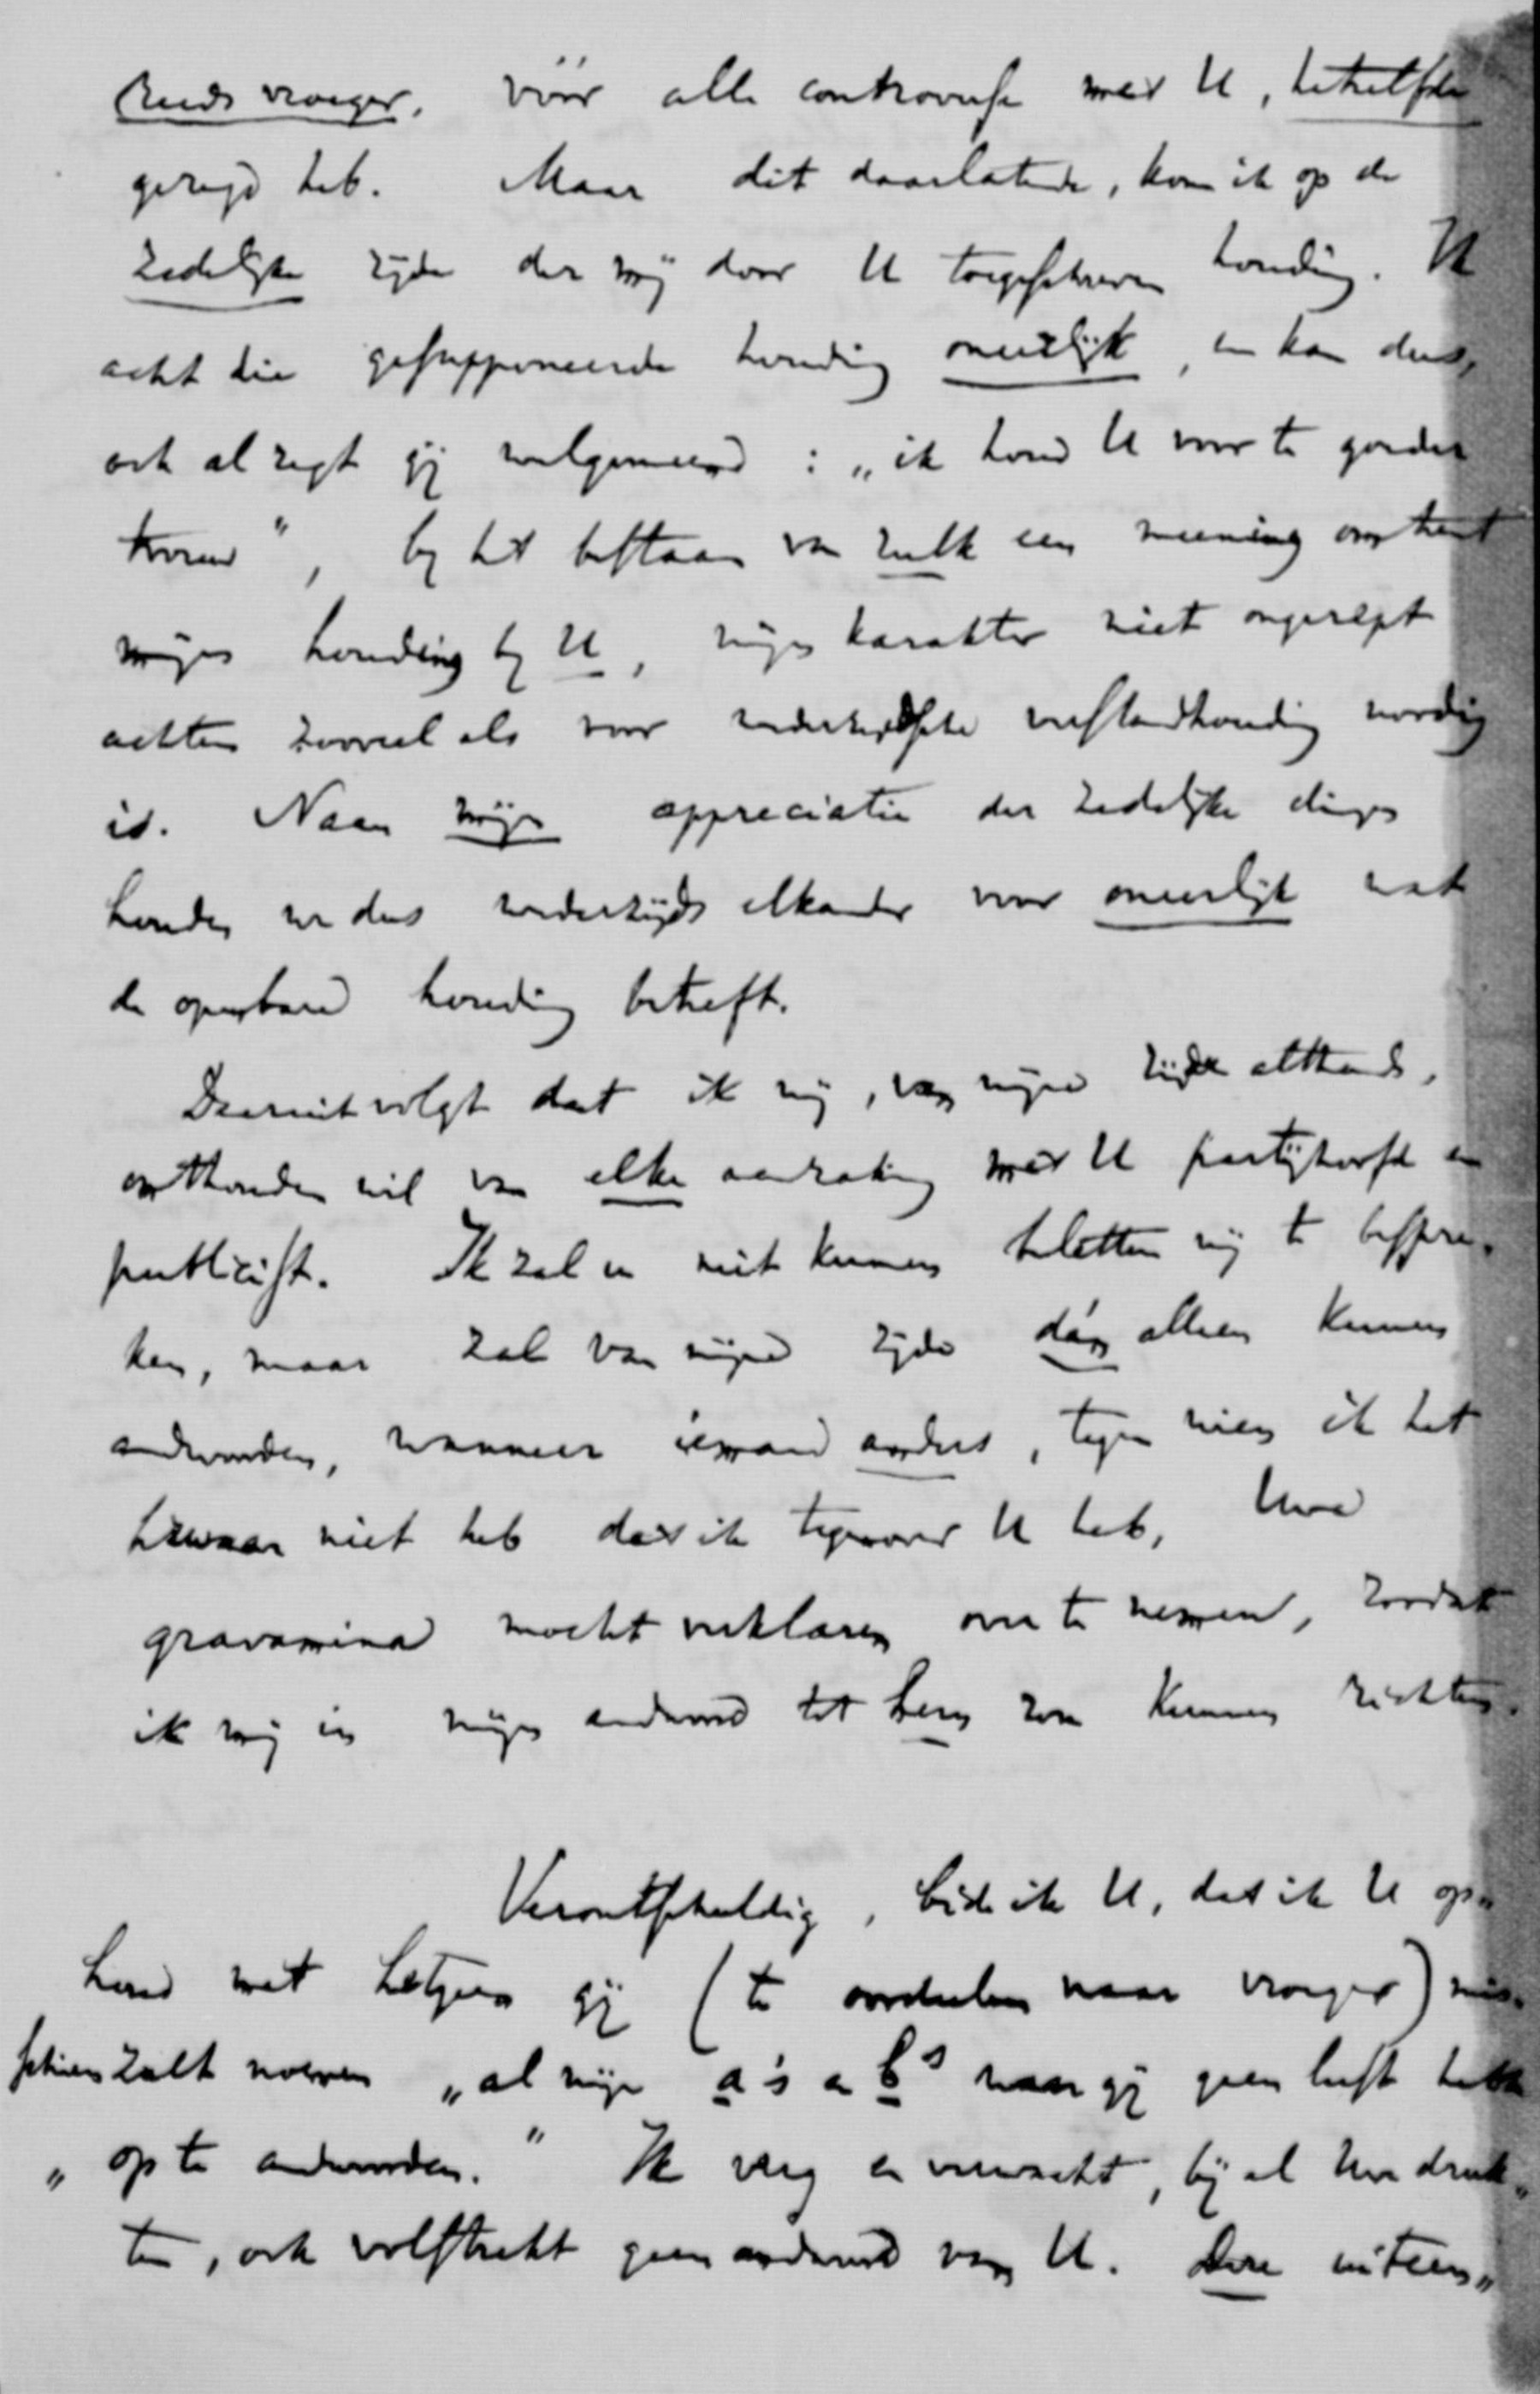 reeds vroeger, vóór alle controverse met U, hetzelfde
gezegd heb. Maar dit daarlatende, kom ik op de
zedelijke zijde der mij door U toegeschreven houding. U
acht die gesupponeerde houding oneerlijk, en kan dus,
ook al zegt gij welgemeend: „ik houd U voor te goeder
trouw", bij het bestaan van zulk een meening omtrent
mijne houding bij U, mijn karakter niet ongerept
achten zooveel als voor verstandhouding noodig
is. Naar mijne appreciatie der zedelijke dingen
houden we dus wederzijds elkander voor oneerlijk wat
de openbare houding betreft.
Daaruit volgt dat ik mij, van mijne zijde althands,
onthouden wil van elke aanraking met U partijhoofd en
publicist. Ik zal u niet kunnen beletten mij te bespre„
ken, maar zal van mijne zijde dán alleen kunnen
andwoorden, wanneer iemand anders, tegen wien ik het
bezwaar niet heb dat ik tegenover U heb, Uwe
gravamina mocht verklaren over te nemen, zoodat
ik mij in mijn andwoord tot hem zou kunnen richten.
Verontschuldig, bid ik U, dat ik U op„
houd met hetgeen gij (te oordeelen naar vroeger) mis„
schien zult noemen „al mijne a's en b's waar gij geen lust hebt
„op te andwoorden." Ik verg en verwacht, bij al Uw druk„
te, ook volstrekt geen andwoord van U. Deze uiteen„